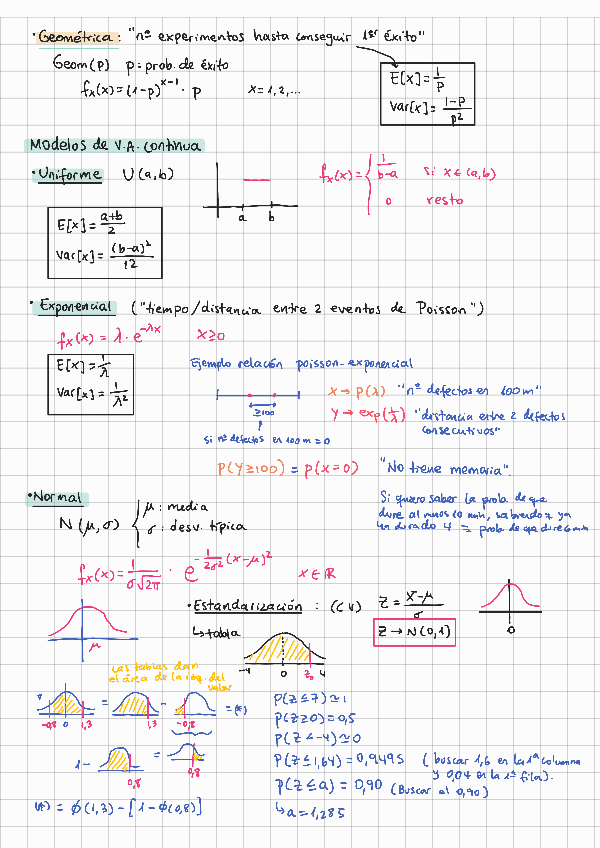 • Geométrica: "nº experimentos hasta conseguir 1er éxito"
Geom(p) p: prob. de éxito
fx(x) = (1-p)^(x-1) · p x = 1, 2, ...
E[x] = 1/p
Var[x] = (1-p)/p²
Modelos de V.A. continua
• Uniforme U(a,b)
fx(x) = { 1/(b-a) si x ∈ (a,b)
0 resto
a b
E[x] = (a+b)/2
Var[x] = (b-a)²/12
• Exponencial ("tiempo/distancia entre 2 eventos de Poisson")
fx(x) = λ · e^(-λx) x≥0
E[x] = 1/λ
Var[x] = 1/λ²
Ejemplo relación poisson-exponencial
≥100
si nº defectos en 100 m = 0
X → P(λ) "nº defectos en 100 m"
Y → exp(1/λ) "distancia entre 2 defectos
consecutivos"
P(Y≥100) = p(x=0) "No tiene memoria".
Si quiero saber la prob. de que
dure al menos 10 min, sabiendo q ya
ha durado 4 = prob. de que dure 6 min
• Normal
N(μ,σ) { μ: media
σ: desv. típica
fx(x) = 1/(σ√2π) · e^(-1/(2σ²) (x-μ)²) x ∈ ℝ
μ
• Estandarización : (CV) Z = (X-μ)/σ
↳ tabla
Z → N(0,1)
0
-4 0 z₀ 4
Las tablas dan
el área de la izq. del
valor
* = - = (*)
-0,8 0 1,3 1,3 -0,8
1 - =
0,8 0,8
(*) = ϕ(1,3) - [1 - ϕ(0,8)]
P(Z≤7) ≃ 1
P(Z≥0) = 0,5
P(Z≤-4) ≃ 0
P(Z≤1,64) = 0,9495 (buscar 1,6 en la 1ª columna
y 0,04 en la 1ª fila).
P(Z≤a) = 0,90 (Buscar al 0,90)
↳ a = 1,285